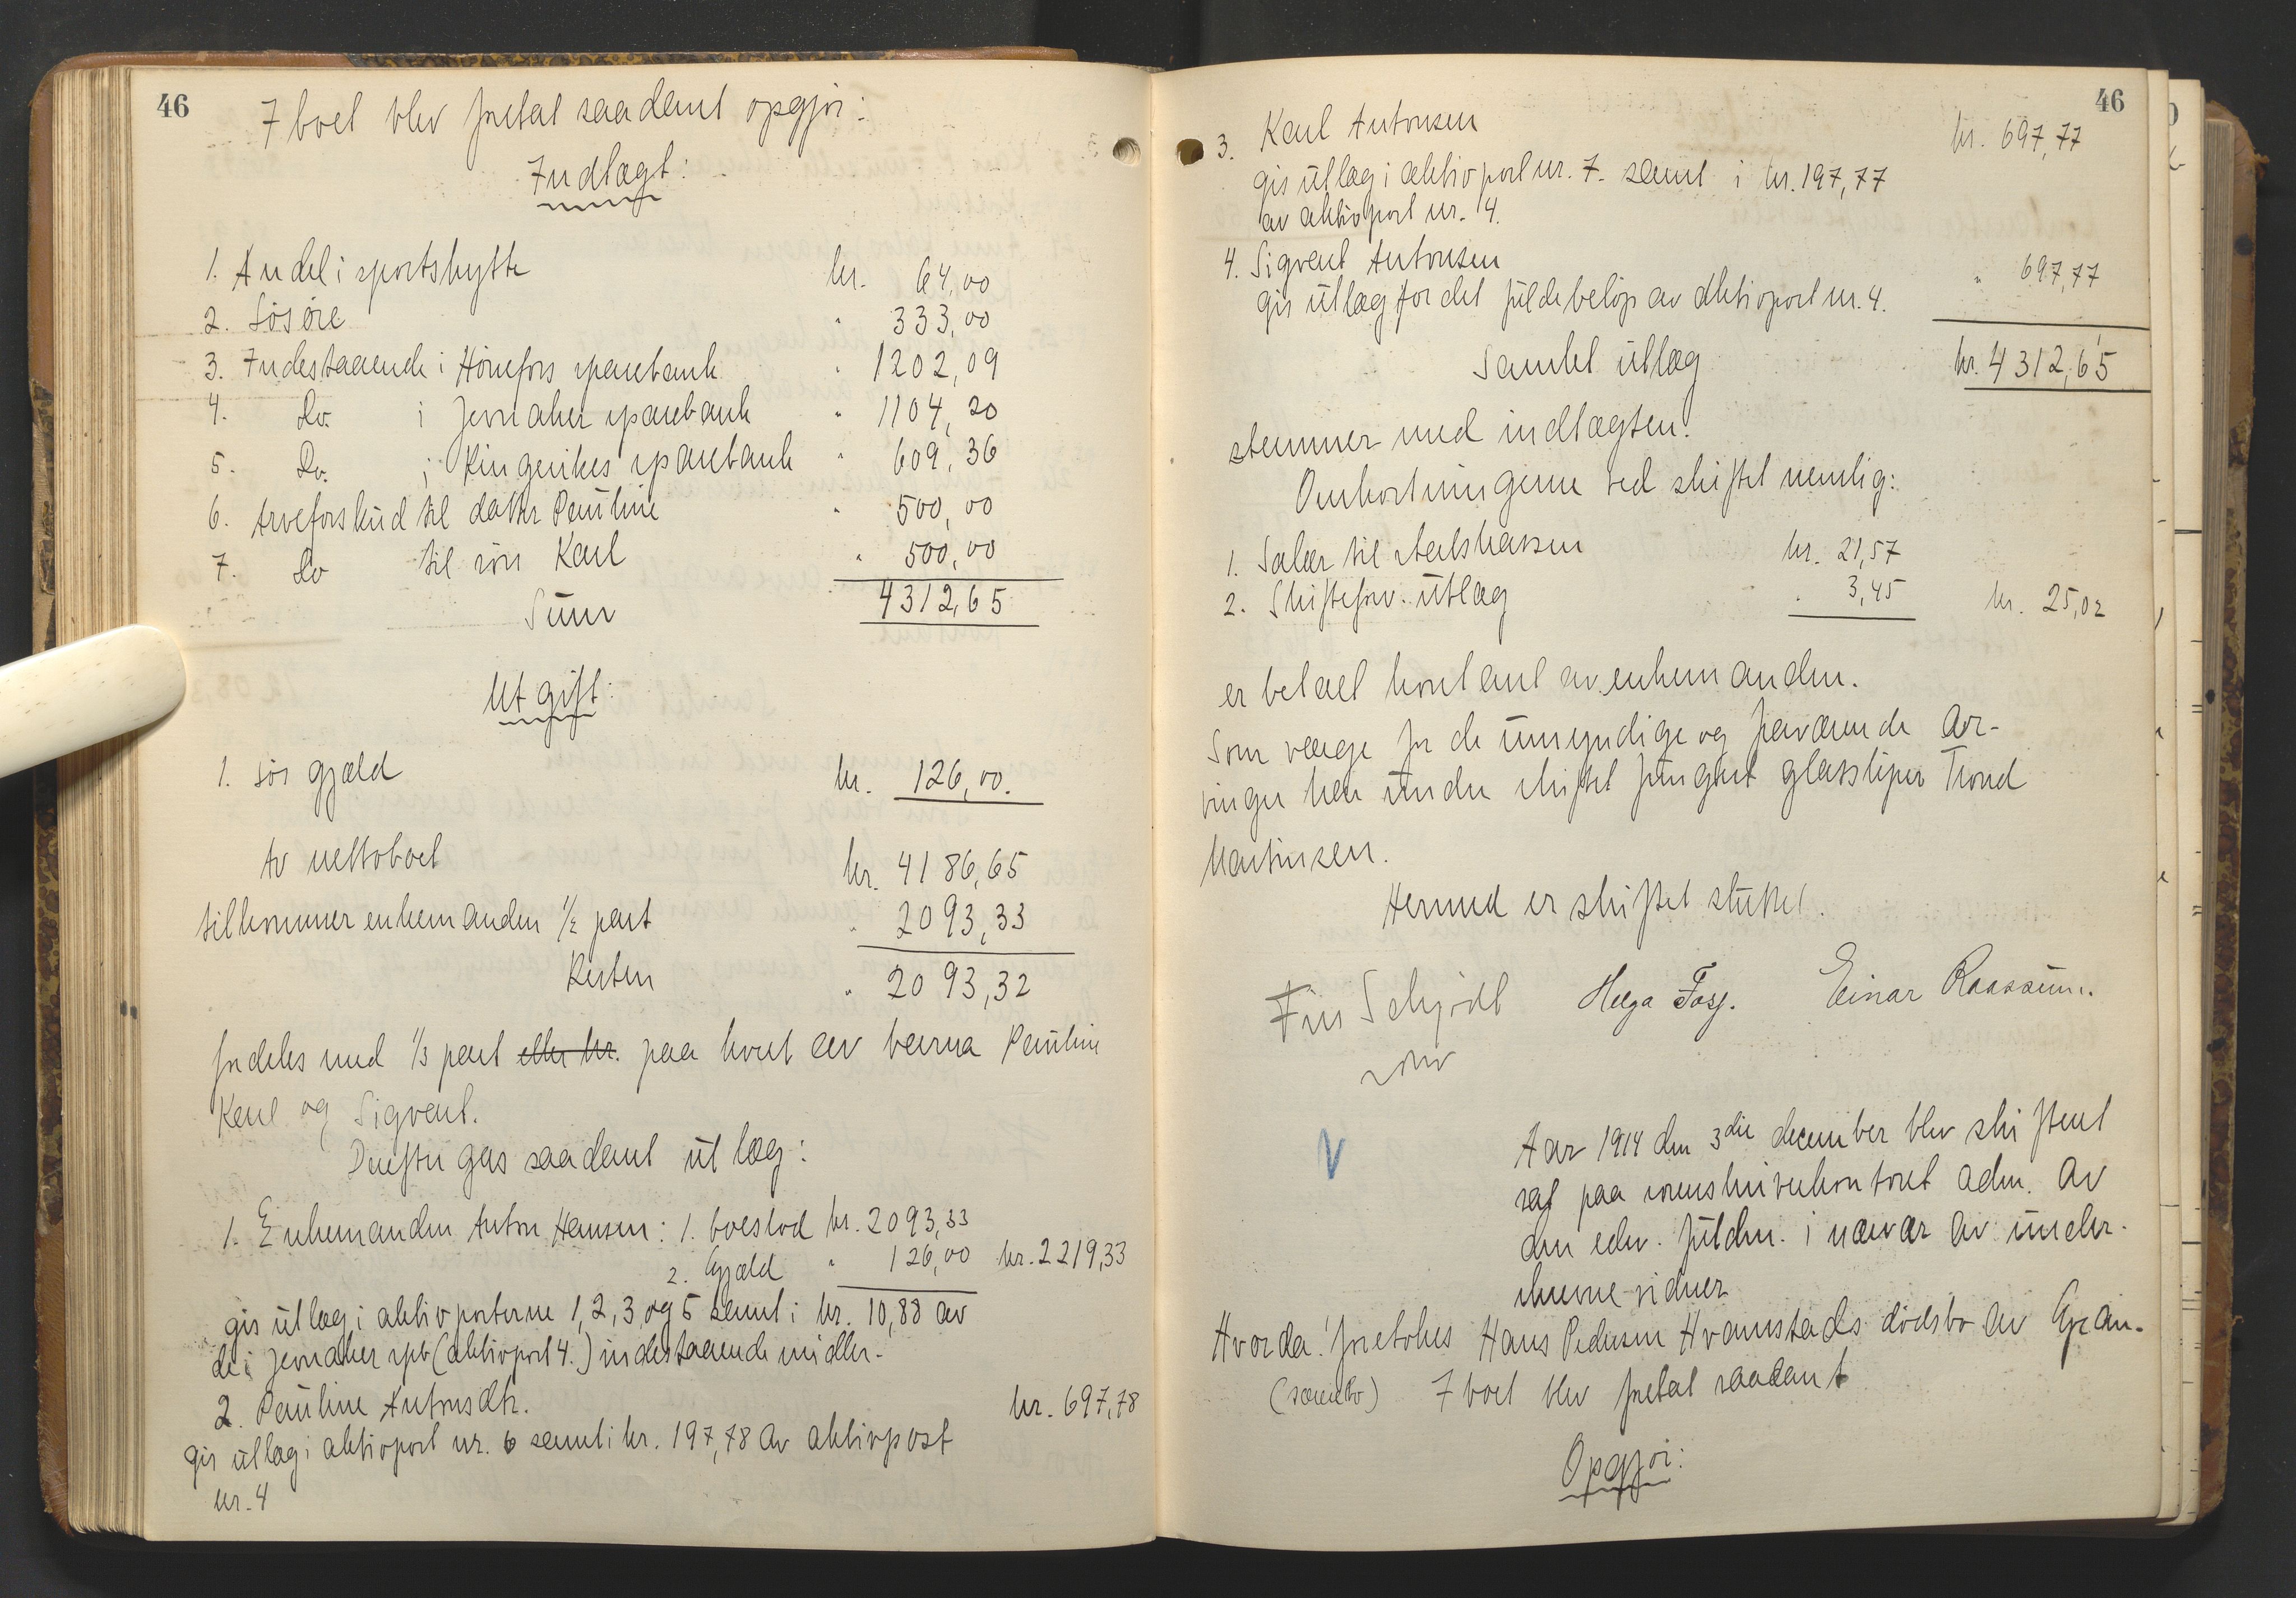 46
I boet blev foretat saadant opgjør:
Indtægt:
1. Andel i sportshytte kr. 64,00
2. Løsøre " 333,00
3. Indestaaende i Hønefos sparebank " 1202,09
4. Do. i Jevnaker sparebank " 1104,20
5. Do. i Ringerikes sparebank " 609,36
6. Arveforskud til datter Pauline " 500,00
7. Do til søn Karl " 500,00
Sum 4312,65
Utgift:
1. Løs gjæld kr. 126,00.
Av nettoboet kr. 4186,65
tilkommer enkemanden 1/2 part " 2093,33
Resten " 2093,32
fordeles med 1/3 part eller kr. paa hvert av barna Pauline
Karl og Sigvart.
Derefter gas saadant utlæg:
1. Enkemanden Anton Hansen: 1. boeslod kr. 2093,33
2. Gjæld " 126,00 kr. 2219,33
gis utlæg i aktivposterne 1, 2, 3, og 5 samt i kr. 10,88 av
de i Jevnaker spb (aktivpost 4.) indestaaende midler.
2. Pauline Antonsdtr. kr. 697,78
gis utlæg i aktivpost nr. 6 samt i kr. 197,78 av aktivpost
nr. 4
46
3. Karl Antonsen kr. 697,77
gis utlæg i aktivpost nr. 7. samt i kr. 197,77
av aktivpost nr. 4.
4. Sigvart Antonsen " 697,77
gis utlæg for det fulde beløp av aktivpost nr. 4.
Samlet utlæg kr. 4312,65
stemmer med indtægten.
Omkostningerne ved skiftet nemlig:
1. Salær til statskassen kr. 21,57
2. Skifteforv. utlæg " 3,45 kr. 25,02
er betalt kontant av enkemanden.
Som værge for de umyndige og fraværende ar-
vinger har under skiftet fungert glassliper Trond
Martinsen.
Hermed er skiftet sluttet.
Fin Schjødt Helga Fosj. Einar Raassum.
V
Aar 1914 den 3die december blev skifteret
sat paa sorenskriverkontoret adm. av
den edsv. fuldm. i nærvær av under-
skrevne vidner
Hvorda! foretokes Hans Pedersen Hvamstads dødsbo av Gran.
(særbo) I boet blev foretat saadant
Opgjør: